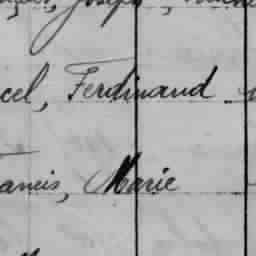 Joseph,
cel, Ferdinand
ancis, Marie